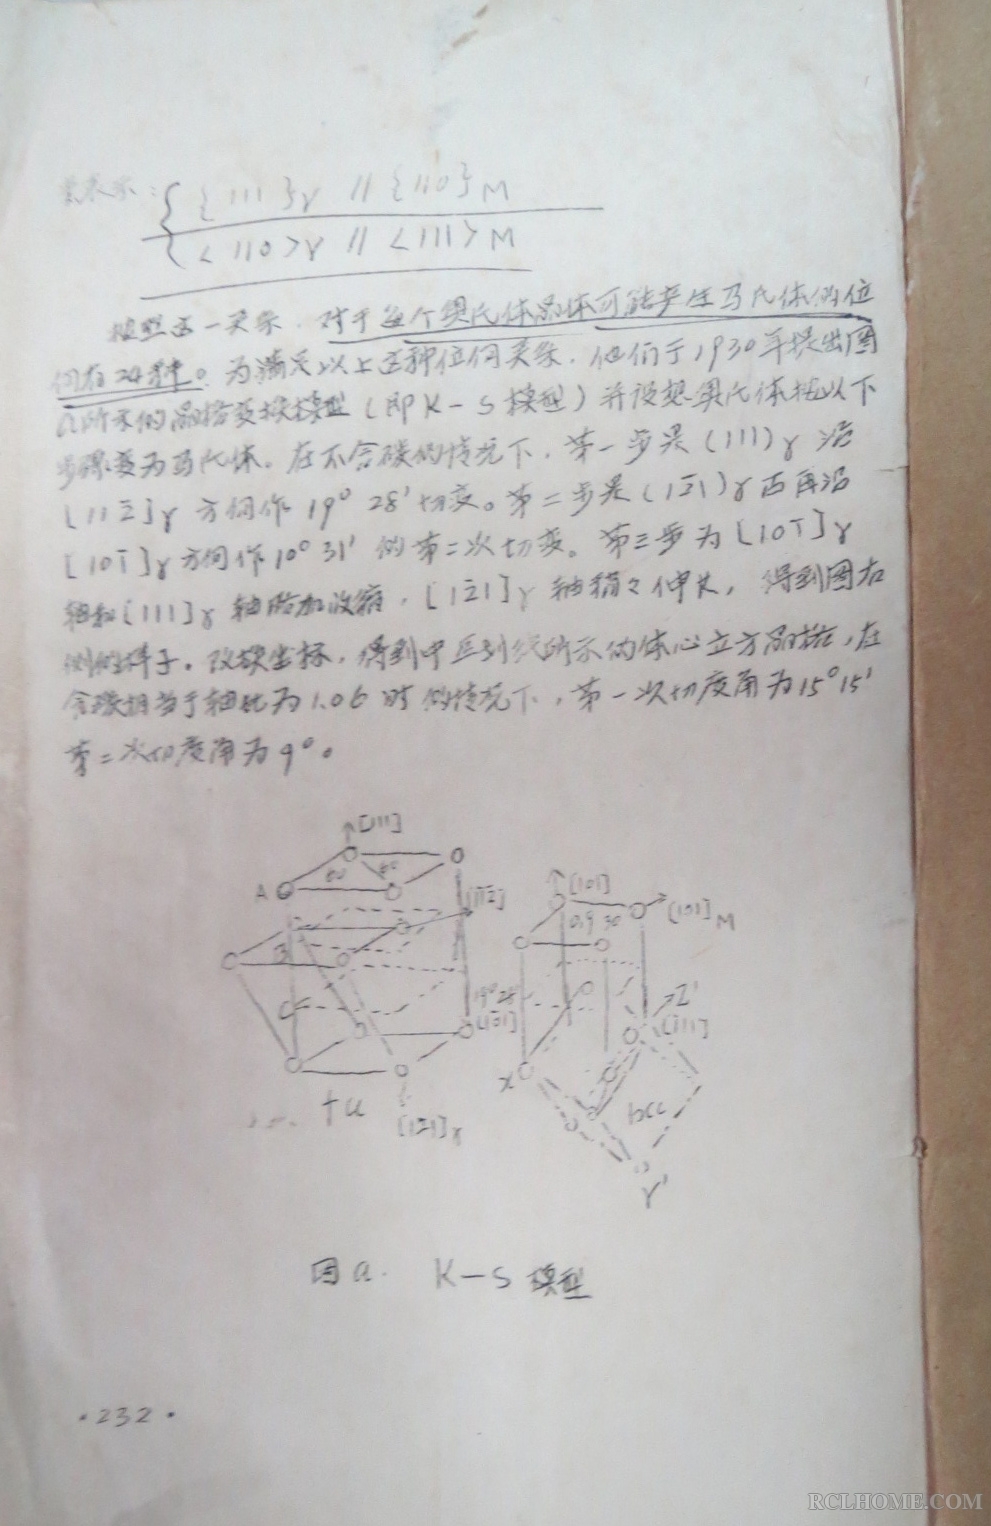 {111}γ // {110}M
<110>γ // <111>M
按照这一关系，对于每个奥氏体晶体可能产生马氏体的位
向有24种。为满足以上这种位向关系，他们于1930年提出图
a所示的晶格变换模型（即K-S模型）并设想奥氏体按以下
步骤变为马氏体。在不含碳的情况下，第一步是(111)γ沿
[112̄]γ方向作19°28'切变。第二步是(12̄1)γ面再沿
[101̄]γ方向作10°31'的第二次切变。第三步为[101̄]γ
轴和[111]γ轴略加收缩，[12̄1]γ轴稍々伸长，得到图右
侧的样子。改换坐标，得到中所示的体心立方晶格，在
含碳相当于轴比为1.06时的情况下，第一次切变角为15°15'
第二次切变角为9°。
[111]
60
A
[1̄1̄2]
B
C
19°28'
[1̄01]
[12̄1]γ
[101]
[101]M
Z'
[111]
X
bcc
Y'
图a. K-S模型
·232·
RCLHOME.COM